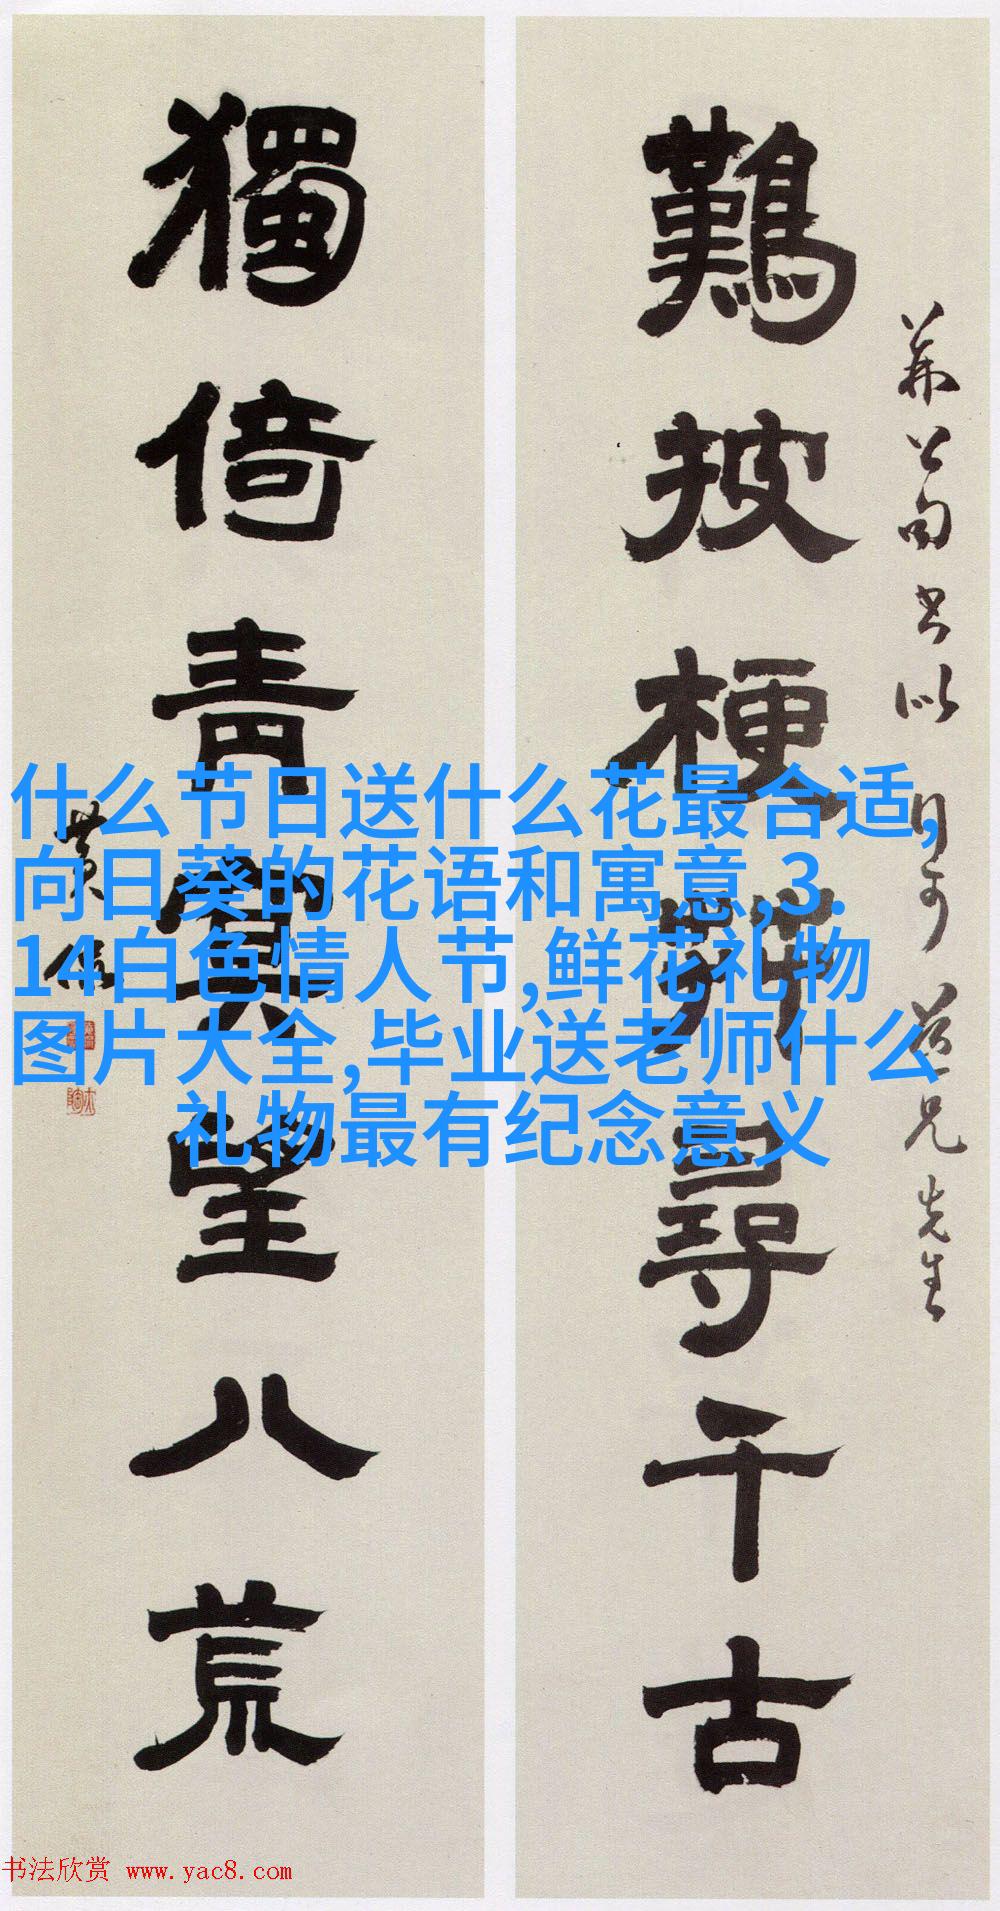 難披梗莽尋千古
獨倚青冥望八荒
什么节日送什么花最合适,
向日葵的花语和寓意,3.
14白色情人节,鲜花礼物
图片大全,毕业送老师什么
礼物最有纪念意义
书法欣赏 www.yac8.com